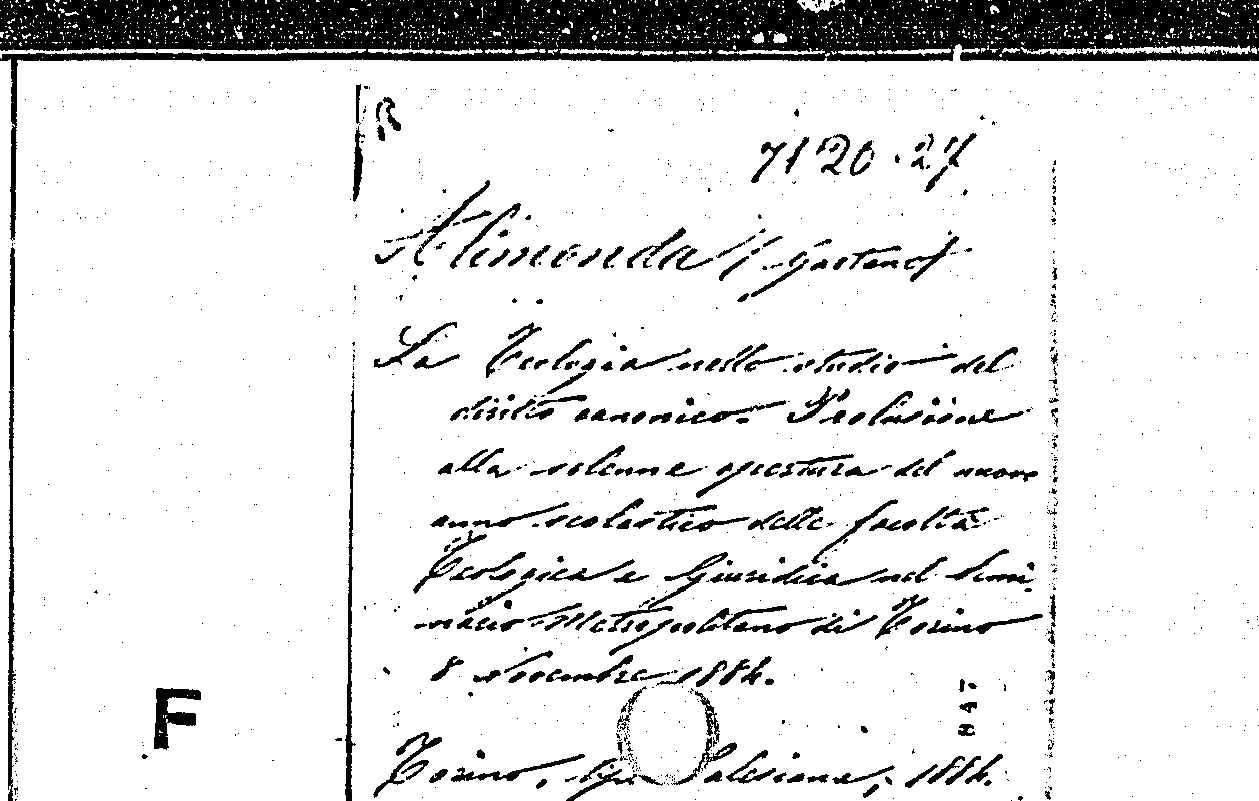 B
7120.27
Alimonda (Gaetano)
La Teologia nello studio del
diritto canonico. Prolusione
alla solenne apertura del nuovo
anno scolastico delle facoltà
Teologica e Giuridica nel Semi-
nario Metropolitano di Torino
8 Novembre 1884.
Torino, tip. Salesiana, 1884.
F